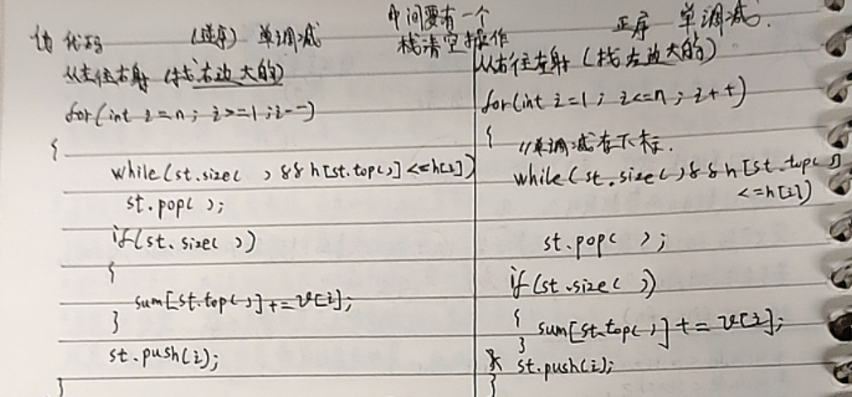 伪代码 (逆序) 单调减
从左往右射 (找右边大的)
for(int i=n; i>=1; i--)
{
while(st.size( ) && h[st.top( )] <=h[i])
st.pop( );
if(st.size( ))
{
sum[st.top( )]+=v[i];
}
st.push(i);
}
中间要有一个
栈清空操作
正序 单调减.
从右往左射 (找左边大的)
for(int i=1; i<=n; i++)
{ //单调减存下标.
while(st.size( )&&h[st.top( )]
<=h[i])
st.pop( );
if(st.size( ))
{ sum[st.top( )]+=v[i];
}
st.push(i);
}